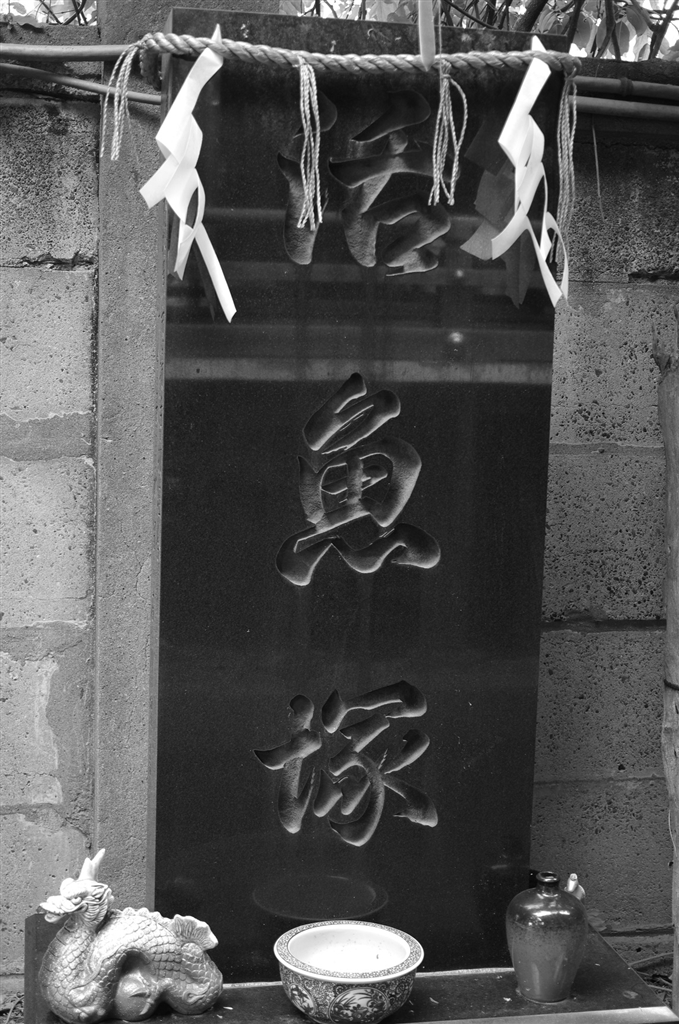 活魚塚